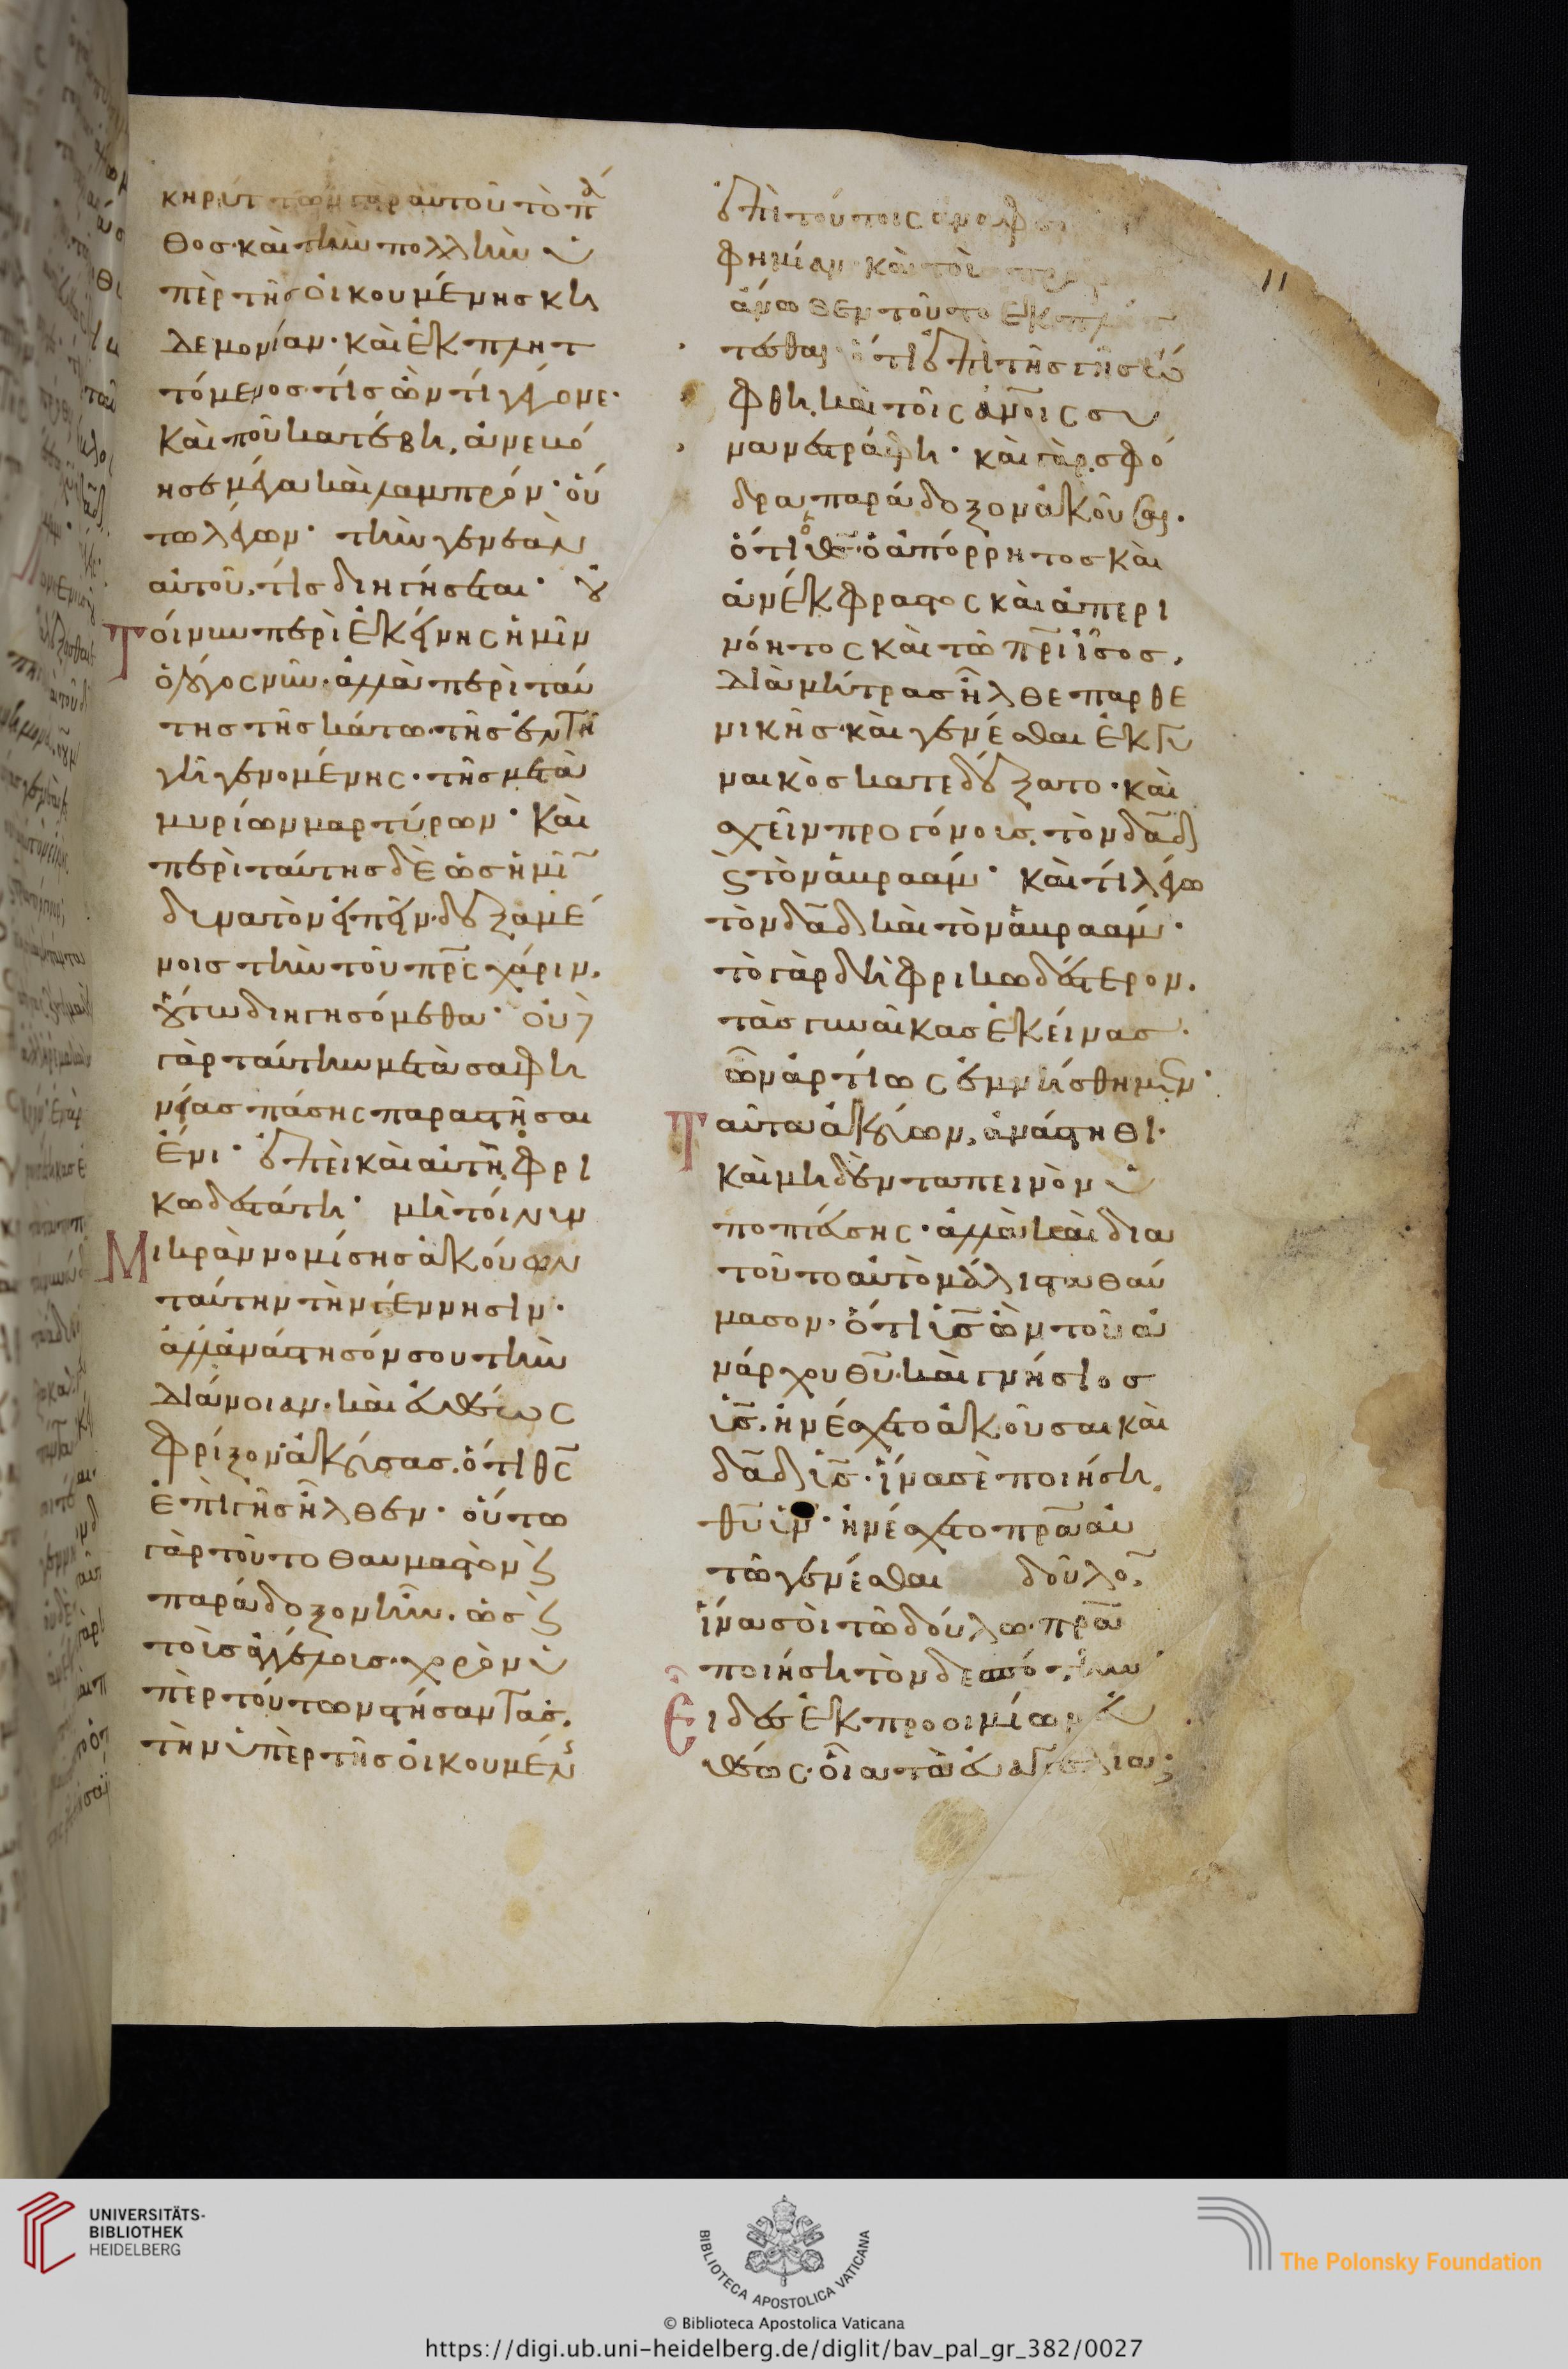 κηρύττων γὰρ αὐτοῦ τὸ πά
θος· καὶ τὴν πολλὴν ὑ
πὲρ τῆς οἰκουμένης κη
δεμονίαν· καὶ ἐκπλητ
τόμενος τίς ὢν τί γέγονε·
καὶ ποῦ κατέβη, ἀνεβό
ησε μέγα καὶ λαμπρόν· οὕ
τω λέγων· τὴν γενεὰν
αὐτοῦ, τίς διηγήσεται· οὐ
Τοίνυν περὶ ἐκείνης ἡμῖν
ὁ λόγος νῦν· ἀλλὰ περὶ ταύ
της τῆς κάτω· τῆς ἐν τῆ
γῆ γενομένης· τῆς μετὰ
μυρίων μαρτύρων· καὶ
περὶ ταύτης δὲ ὡς ἡμῖ̅
δυνατὸν εἰπεῖν· δεξαμέ
νοις τὴν τοῦ πν̅ς χάριν,
οὕτω διηγησόμεθα· οὐδὲ
γὰρ ταύτην μετὰ σαφη
νείας πάσης παραστῆσαι
ἔνι· ἐπεὶ καὶ αὕτη φρι
κωδεστάτη· μὴ τοίνυν
Μικρὰν νομίσης ἀκούων
ταύτην τὴν γέννησιν·
ἀλλ' ἀνάστησόν σου τὴν
διάνοιαν· καὶ εὐθέως
φρίξον ἀκούσας, ὅτι θς̅
ἐπὶ γῆς ἦλθεν· οὕτω
γὰρ τοῦτο θαυμαστὸν ϗ
παράδοξον ἦν, ὡς ϗ
τοῖς ἀγγέλοις χορὸν ὑ
πὲρ τούτων στήσαντας,
τὴν ὑπὲρ τῆς οἰκουμέν
11
ἐπὶ τούτοις
φημίαν· καὶ τοὺς
ἄνωθεν τοῦτο ἐκπλήτ
τεσθαι ὅτι ἐπὶ τῆς γῆς ὤ
φθη, καὶ τοῖς ἀν̅οις συ
νανεστράφη· καὶ γὰρ σφό
δρα παράδοξον ἀκοῦσαι·
ὅτι ὁ θς̅ ὁ ἀπόρρητος καὶ
ἀνέκφραστος καὶ ἀπερι
νόητος καὶ τῶ πρ̅ι ἴσος,
διὰ μήτρας ἦλθε παρθε
νικῆς· καὶ γενέσθαι ἐκ γυ
ναικὸς κατεδέξατο· καὶ
σχεῖν προγόνους, τὸν δα̅δ
ϗ τὸν ἀβραάμ· καὶ τί λέγω
τὸν δα̅δ καὶ τὸν ἀβραάμ·
τὸ γὰρ δὴ φρικωδέστερον,
τὰς γυναῖκας ἐκείνας·
ὧν ἀρτίως ἐμνήσθημεν·
Ταῦτα ἀκούων, ἀνάστηθι·
καὶ μηδὲν ταπεινὸν ὑ
ποπτεύσης· ἀλλὰ καὶ δια
τοῦτο αὐτὸ μάλιστα θαύ
μασον· ὅτι υς̅ ὢν τοῦ ἀ
νάρχου θυ̅· καὶ γνήσιος
υς̅, ἠνέσχετο ἀκοῦσαι καὶ
δα̅δ υς̅· ἵνα σὲ ποιήση,
θυ̅ υν̅· ἠνέσχετο πρ̅α αὐ
τῶ γενέσθαι δοῦλο̅,
ἵνα σοὶ τῶ δούλω πρ̅α
ποιήση τὸν δεσπότην
Εἶδες ἐκ προοιμίων εὐ
θέως· οἷα τὰ εὐαγγέλια;
UNIVERSITÄTS-
BIBLIOTHEK
HEIDELBERG
BIBLIOTECA APOSTOLICA VATICANA
The Polonsky Foundation
© Biblioteca Apostolica Vaticana
https://digi.ub.uni-heidelberg.de/diglit/bav_pal_gr_382/0027